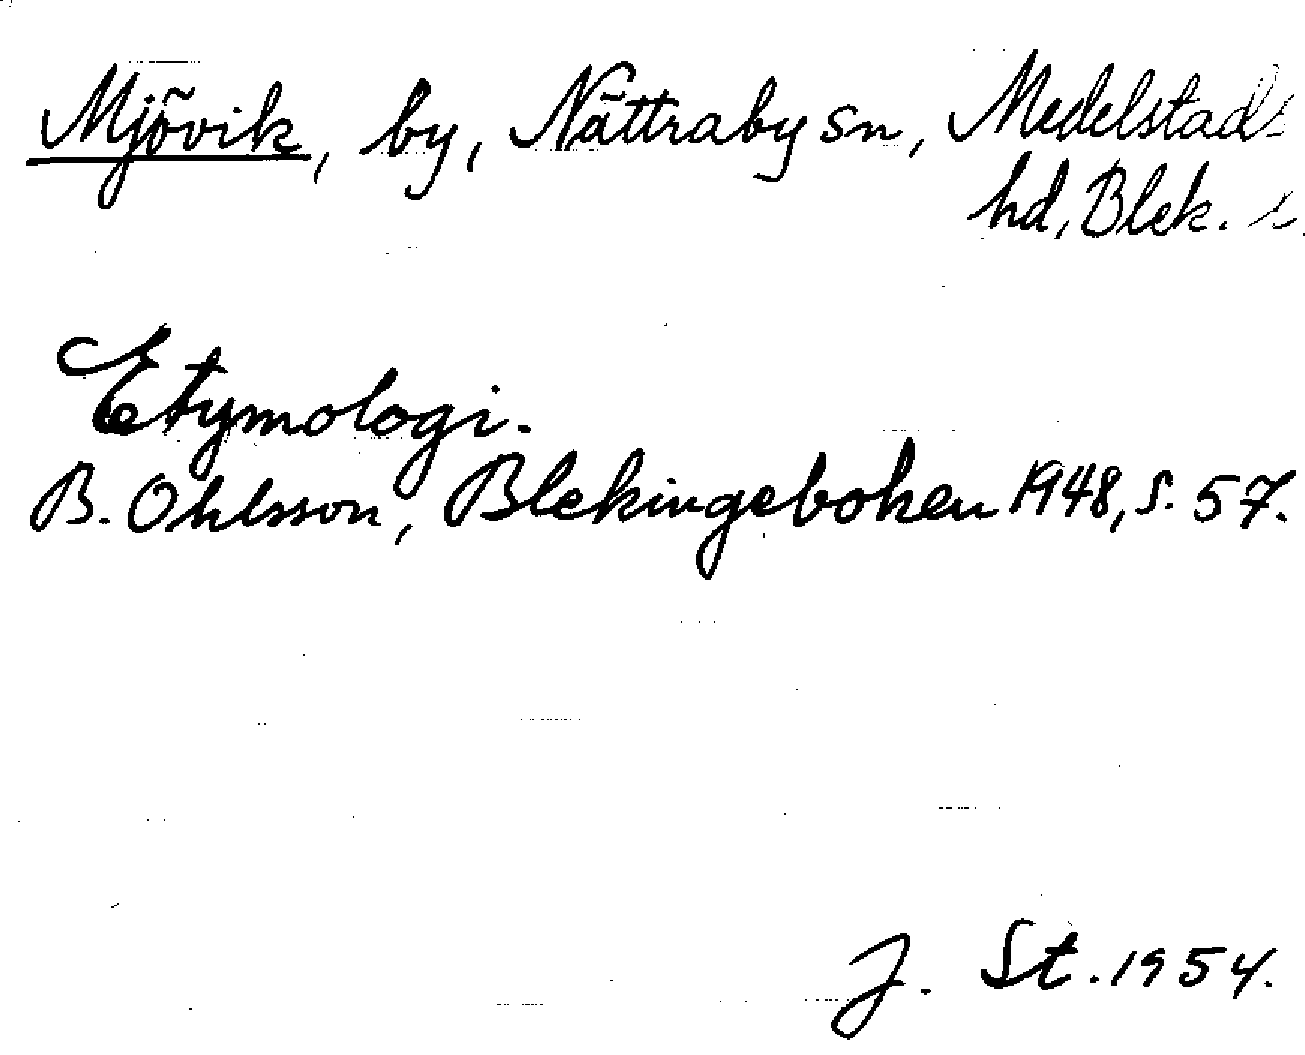 Mjövik, by, Nättraby sn, Medelstads
hd, Blek. l.
Etymologi.
B. Ohlsson, Blekingeboken 1948, s. 57.
J. St. 1954.